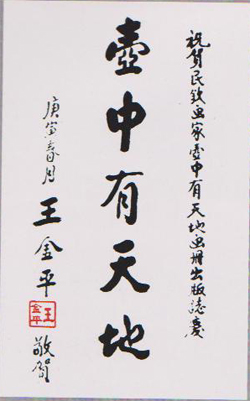 祝賀民欽畫家壺中有天地畫冊出版誌慶
壺中有天地
庚寅春月
王金平
敬賀
王金平